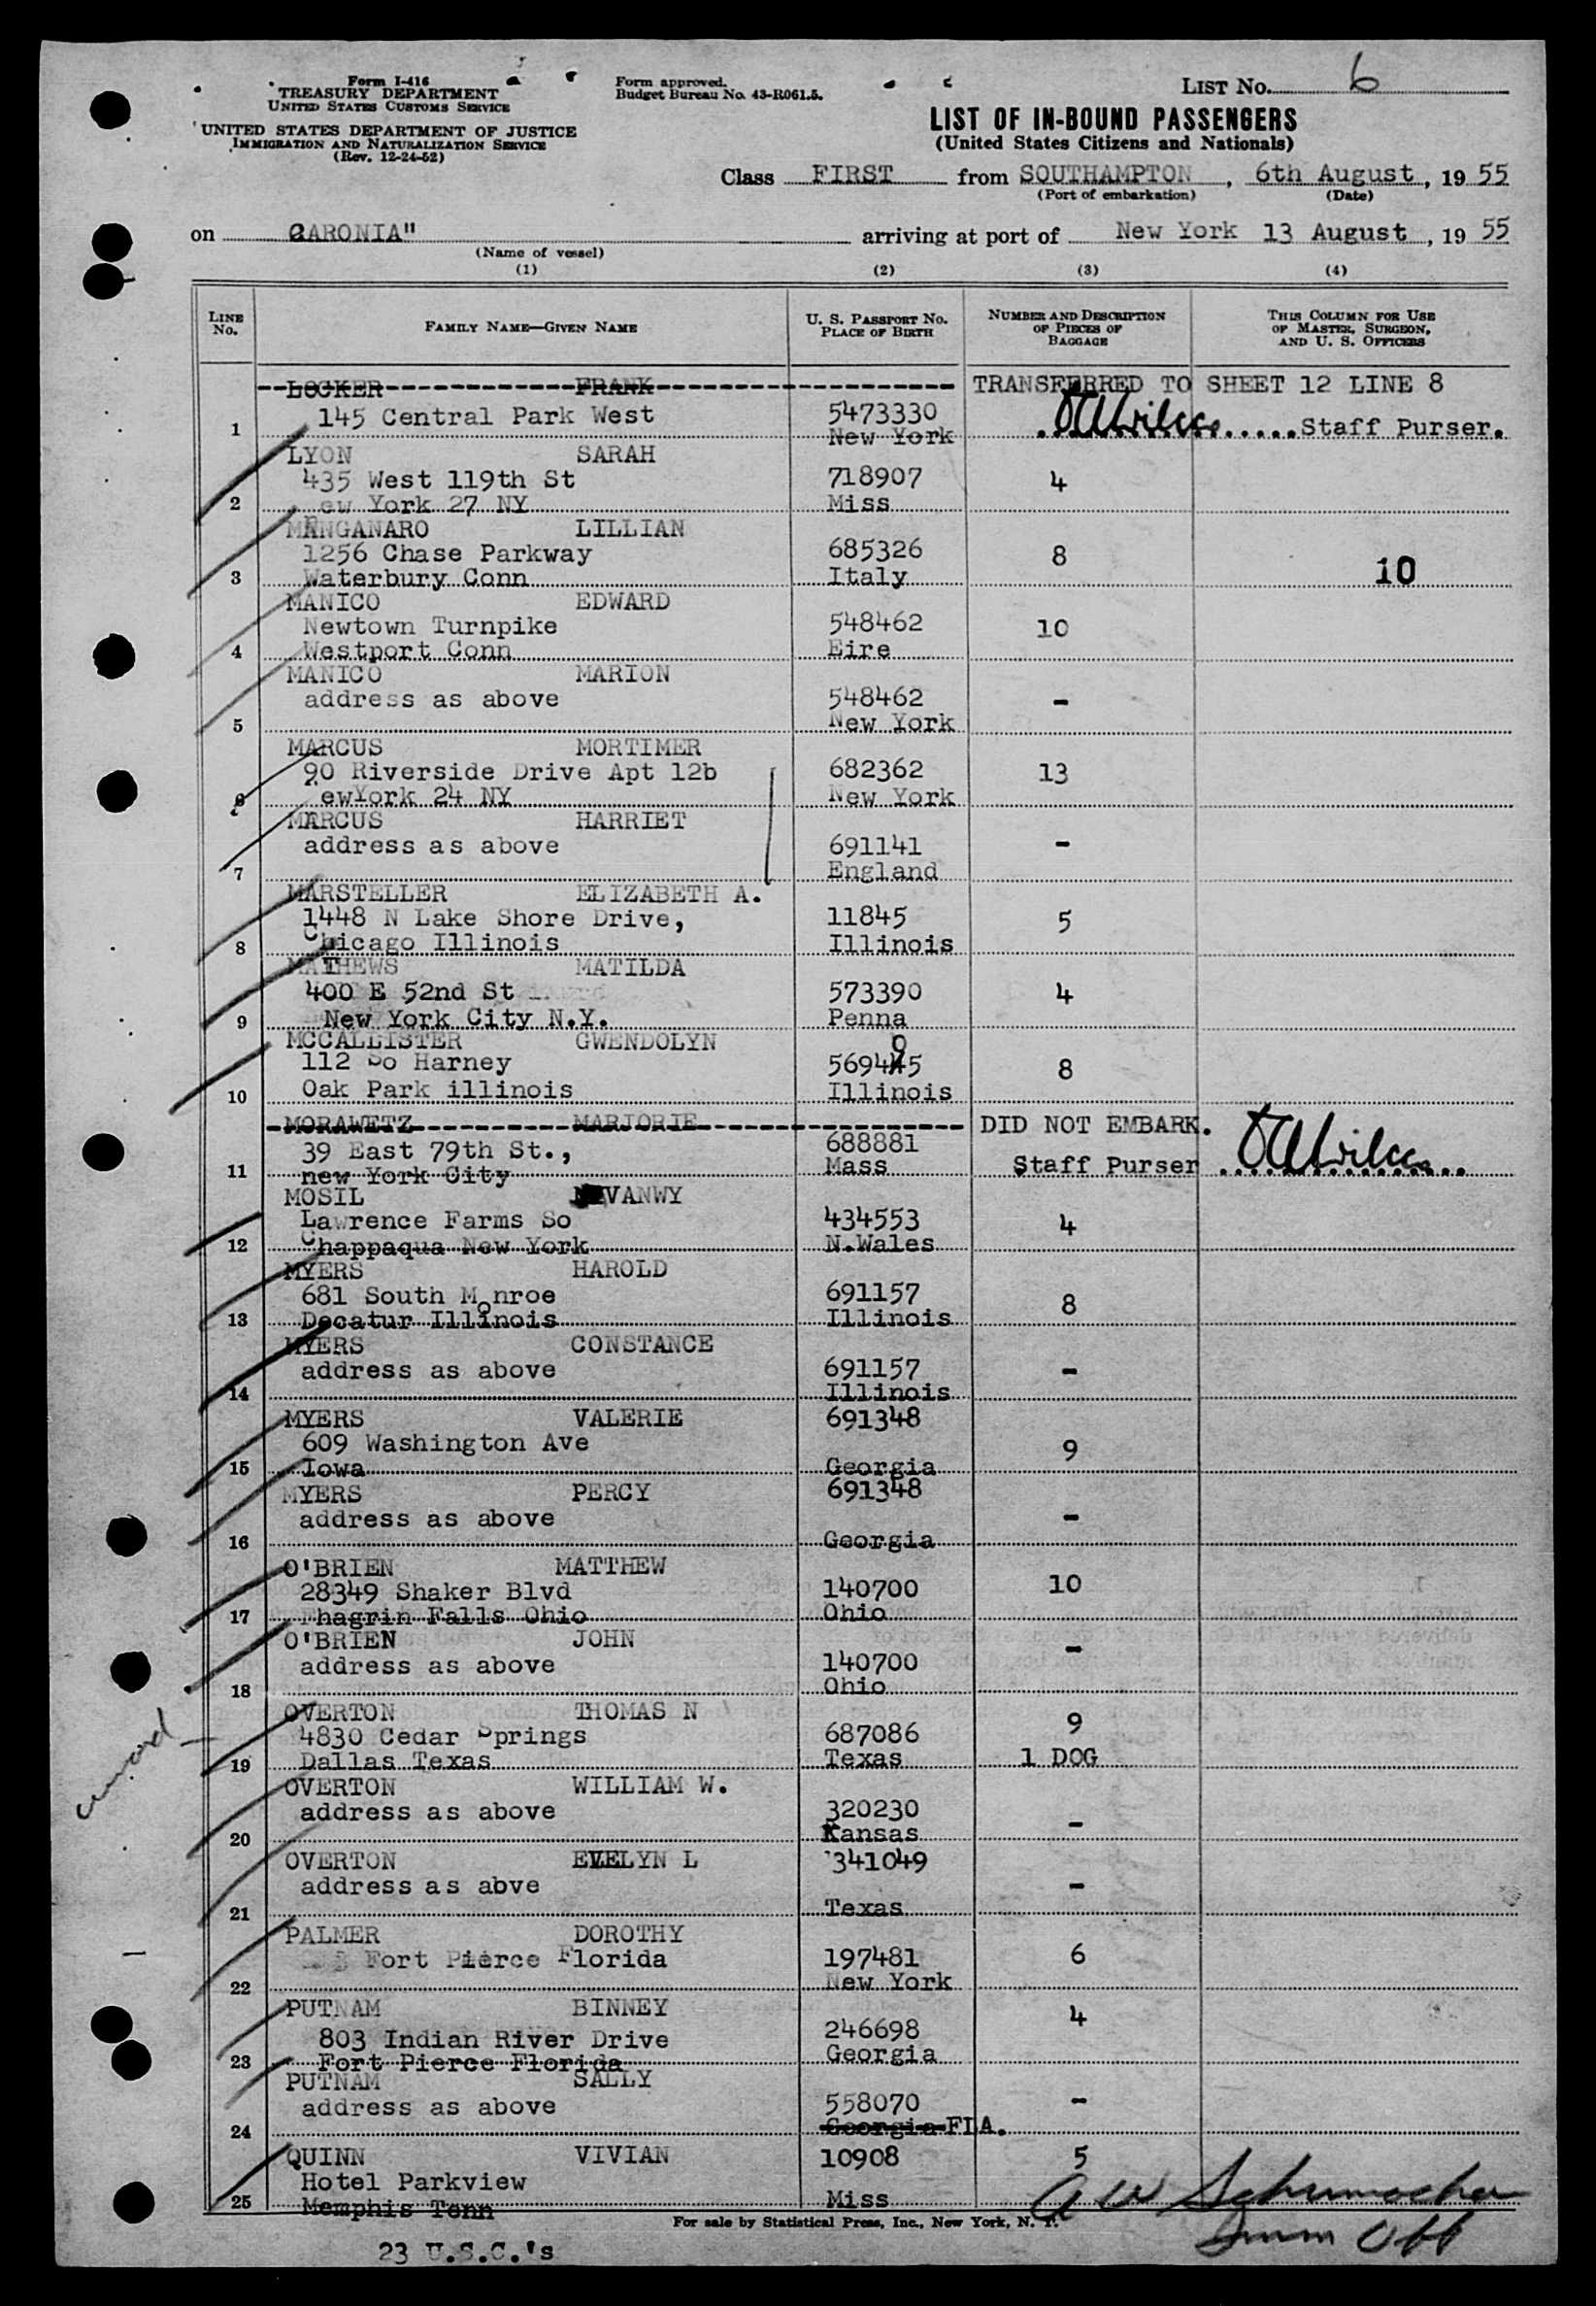 Form I-416
TREASURY DEPARTMENT
UNITED STATES CUSTOMS SERVICE
UNITED STATES DEPARTMENT OF JUSTICE
IMMIGRATION AND NATURALIZATION SERVICE
(Rev. 12-24-52)
Form approved.
Budget Bureau No. 43-R061.5.
LIST No. 6
LIST OF IN-BOUND PASSENGERS
(United States Citizens and Nationals)
Class FIRST from SOUTHAMPTON, 6th August, 19 55
(Port of embarkation) (Date)
on CARONIA" arriving at port of New York 13 August, 19 55
(Name of vessel)
(1) (2) (3) (4)
LINE No. FAMILY NAME—GIVEN NAME U. S. PASSPORT No. PLACE OF BIRTH NUMBER AND DESCRIPTION OF PIECES OF BAGGAGE THIS COLUMN FOR USE OF MASTER, SURGEON, AND U. S. OFFICERS
LOCKER FRANK TRANSFERRED TO SHEET 12 LINE 8
145 Central Park West 5473330
1 New York Staff Purser.
LYON SARAH
435 West 119th St 718907 4
2 ew York 27 NY Miss
MANGANARO LILLIAN
1256 Chase Parkway 685326 8
3 Waterbury Conn Italy 10
MANICO EDWARD
Newtown Turnpike 548462 10
4 Westport Conn Eire
MANICO MARION
address as above 548462 -
5 New York
MARCUS MORTIMER
90 Riverside Drive Apt 12b 682362 13
6 ewYork 24 NY New York
MARCUS HARRIET
address as above 691141 -
7 England
MARSTELLER ELIZABETH A.
1448 N Lake Shore Drive, 11845 5
8 Chicago Illinois Illinois
MATHEWS MATILDA
400 E 52nd St 573390 4
9 New York City N.Y. Penna
MCCALLISTER GWENDOLYN 9
112 So Harney 569445 8
10 Oak Park illinois Illinois
MORAWETZ MARJORIE DID NOT EMBARK.
39 East 79th St., 688881
11 new York City Mass Staff Purser
MOSIL VANWY
Lawrence Farms So 434553 4
12 Chappaqua New York N.Wales
MYERS HAROLD
681 South Monroe 691157 8
13 Decatur Illinois Illinois
MYERS CONSTANCE
address as above 691157 -
14 Illinois
MYERS VALERIE 691348
609 Washington Ave 9
15 Iowa Georgia
MYERS PERCY 691348
address as above -
16 Georgia
O'BRIEN MATTHEW
28349 Shaker Blvd 140700 10
17 hagrin Falls Ohio Ohio
O'BRIEN JOHN
address as above 140700 -
18 Ohio
OVERTON THOMAS N
4830 Cedar Springs 687086 9
19 Dallas Texas Texas 1 DOG
OVERTON WILLIAM W.
address as above 320230 -
20 Kansas
OVERTON EVELYN L 341049
address as abve -
21 Texas
PALMER DOROTHY
Fort Pierce Florida 197481 6
22 New York
PUTNAM BINNEY
803 Indian River Drive 246698 4
23 Fort Pierce Florida Georgia
PUTNAM SALLY
address as above 558070 -
24 Georgia FLA.
QUINN VIVIAN 10908 5
Hotel Parkview
25 Memphis Tenn Miss
A W Schumacher
For sale by Statistical Press, Inc., New York, N. Y.
Imm Off
23 U.S.C.'s